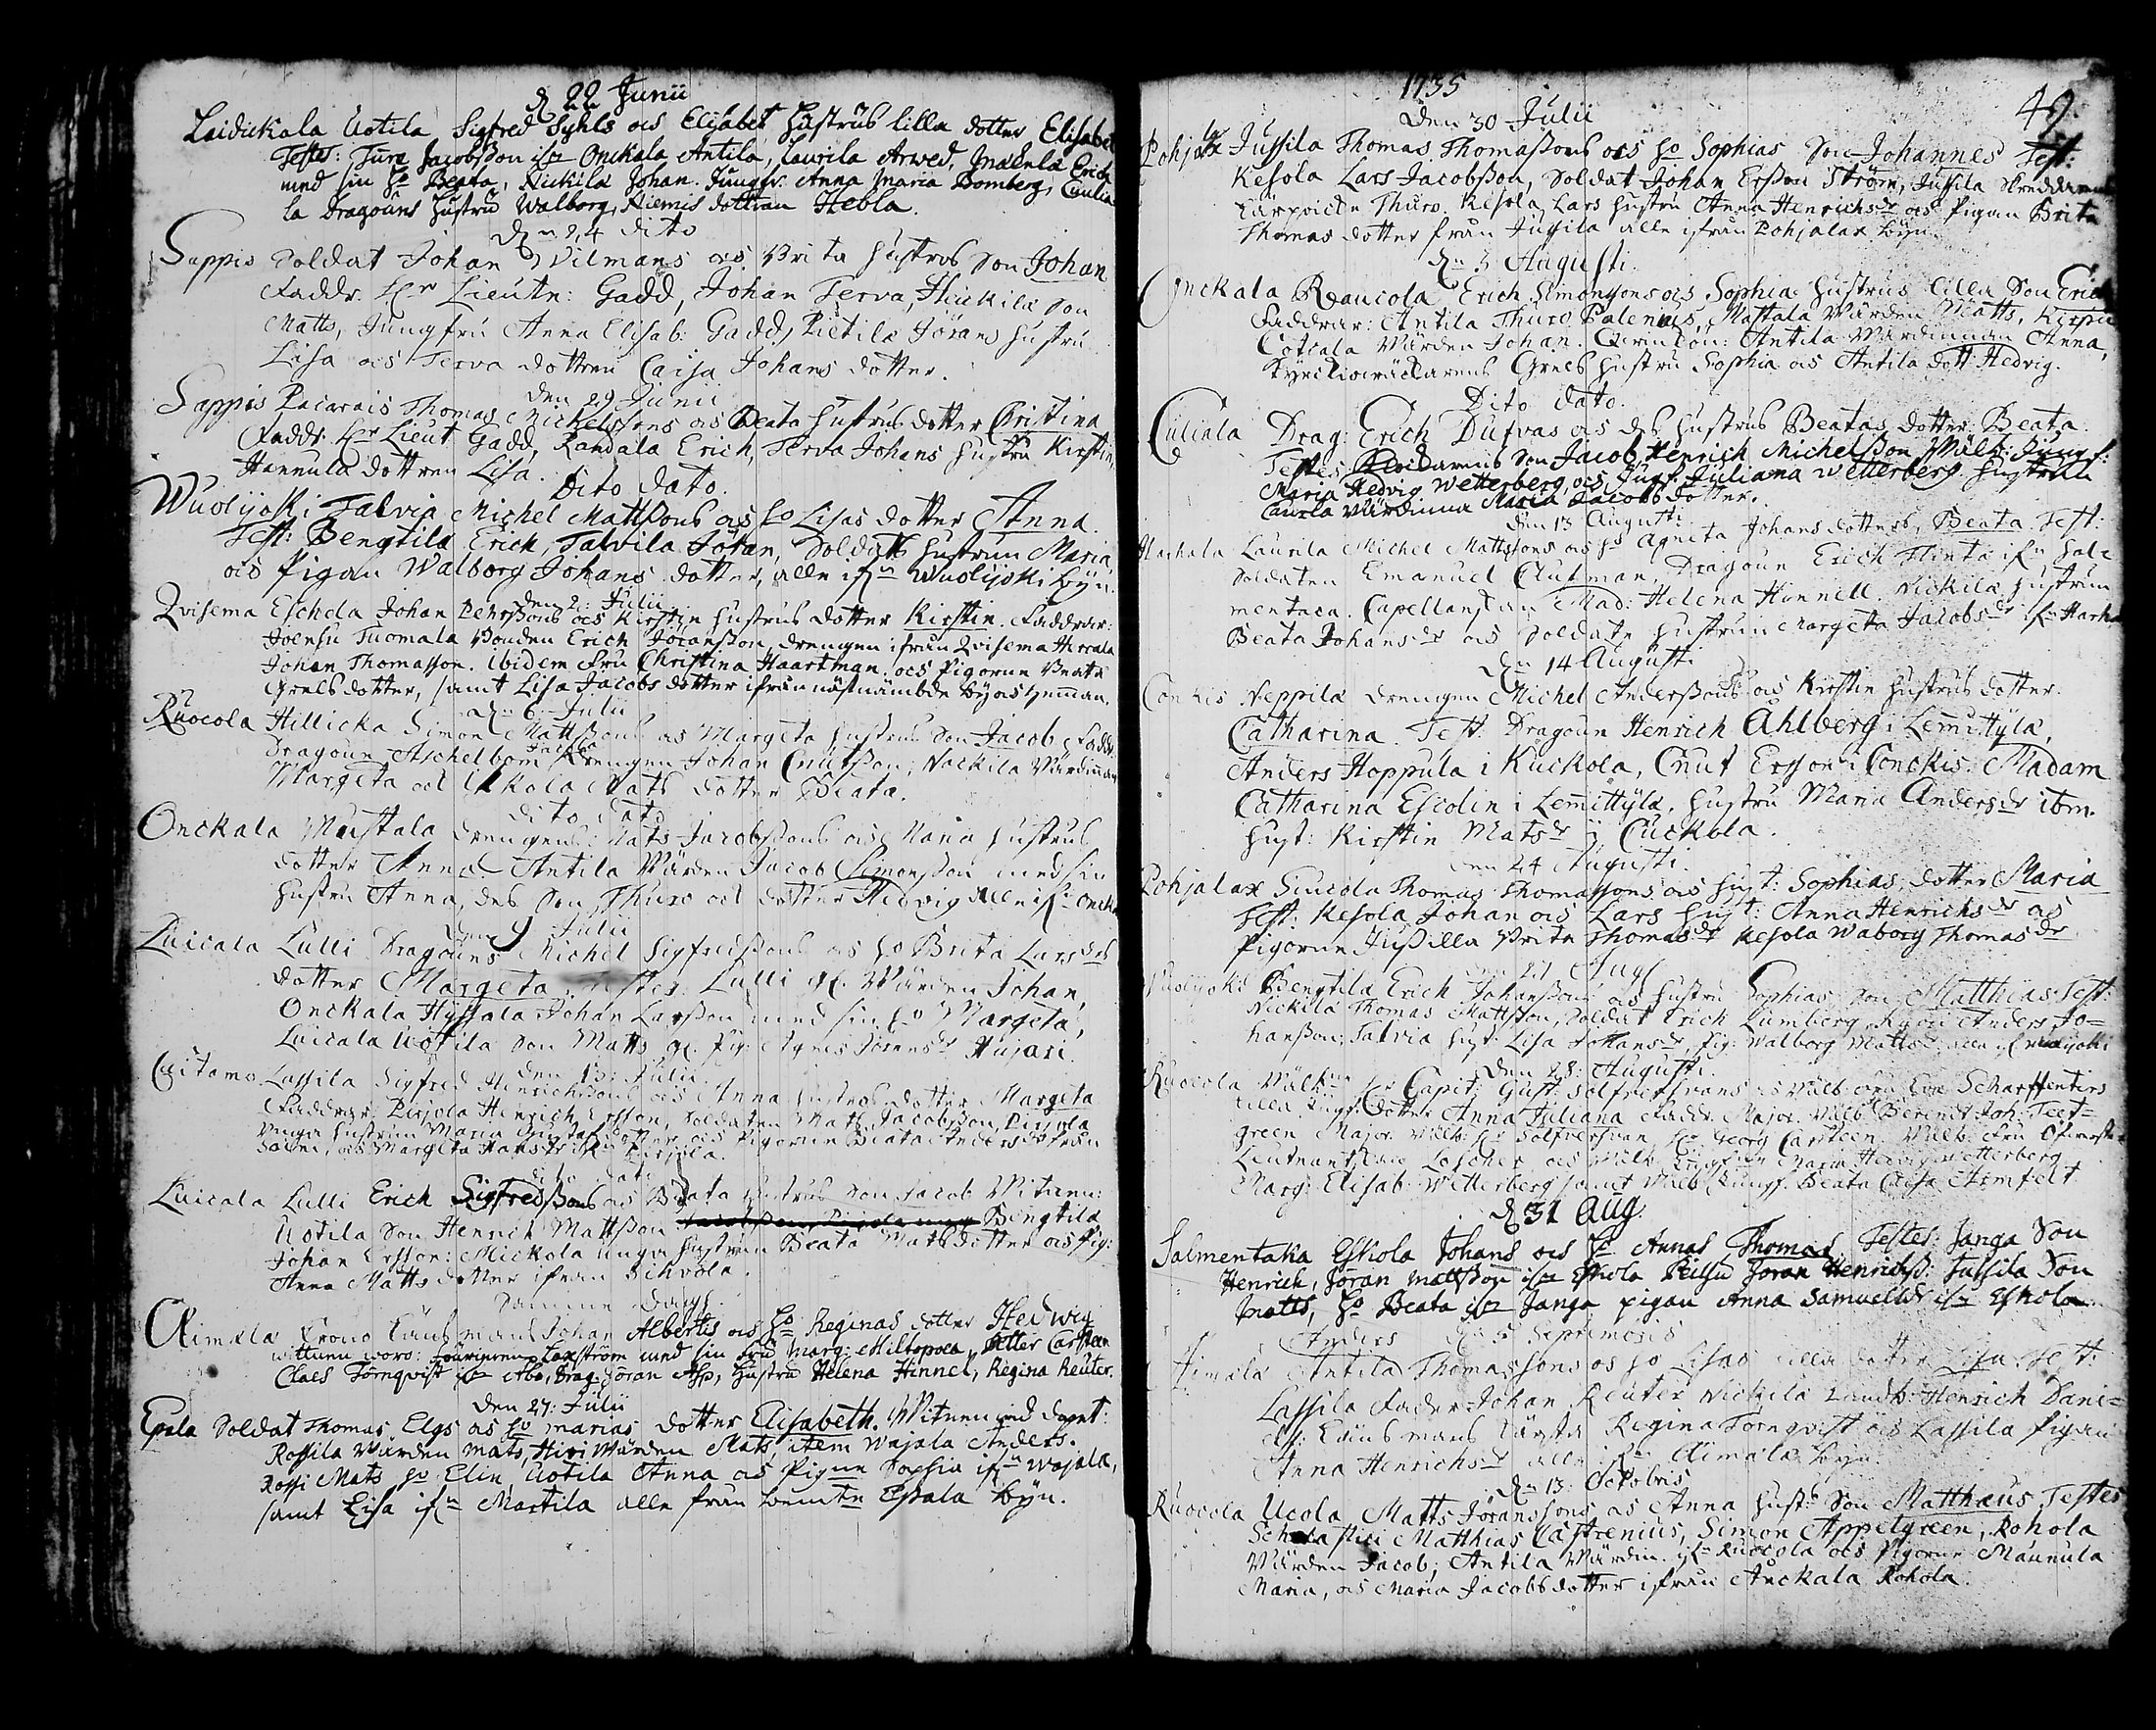 d 22 Junii
Luidickala Uotila Sigfred Syhls ocs Elisabet Hustrus lilla dotter Elisabet
Testes: Ture Jacobsson ifrn Onckala Antila, Laurila Arwed, Mackela Erich
med sin ho Beata, Nickila Johan. Jungfr. Anna Maria Bomberg, Cuulia
la Dragouns Hustru Walborg, Niemis dottran Hebla.
dn 24 dito
Sappis Soldat Johan Wilmans ocs Brita Hustros Son Johan
Faddr. Hr Lieutn: Gadd, Johan Terva, Heickila Son
Matts, Jungfru Anna Elisab: Gadd, Pietila Jörans Hustru
Lisa ocs Terva dottren Caisa Johans dotter.
den 29 Junii
Sappis Pacarais Thomas Michelssons ocs Beata Hustrus dotter Christina
Faddr. Hr Lieut Gadd, Randala Erich, Terva Johans Hustru Kirstin,
Hannula dottren Lisa.
Dito dato.
Wuolijoki Talvia Michel Mattssons ocs ho Lisas dotter Anna.
Test: Bengtila Erich, Talvila Jöran, Soldats Hustrun Maria
ocs Pigan Walborg Johans dotter, alle ifrn Wuolijoki byn.
den 2: Julii
Zvisema Eschela Johan Pehrssons ocs Kirstin Hustrus dotter Kirstin. Faddrar:
Joensu Tuomala Bonden Erich Göransson, drengen ifrån Zvisema Hercala
Johan Thomasson. Ibidem Fru Christina Haartman, ocs Pigorna Beata
Grelsdotter, samt Lisa Jacobs dotter ifrån nästnämbde by ocs hemman.
dn 6 Julii
Ruocola Hillicka Simon Mattssons ocs Margeta Hustrus Son Jacob Faddr.
Dragoun Aschelbom drengen Johan Cnutsson, Nackila Wärdinnan
Margeta och Ukola Mats dotter Beata.
dito dato
Onckala Mustala drengens Mats Jacobssons ocs Maria Hustrus
dotter Anna Antila Wärden Jacob Simonsson med sin
Hustru Anna, des Son Thuro och dotter Hedvig alle ifrn Oncka
den 9 Julii
Luicala Lulli Dragouns Michel Sigfredssons ocs ho Brita Larsdrs
dotter Margeta. Testes. Lulli gl. Wärden Johan,
Onckala Hyssala Johan Larsson med sin ho Margeta,
Luicala Uotila Son Matts gl. Pig: Agnes Jörensdr Hujari.
den 13: Julii.
Caitamo Lassila Sigfred Henrichssons ocs Anna Hustros dotter Margeta
Faddrar: Pirjola Henrich Ersson, Soldaten Mats Jacobsson, Pirjola
Unga Hustrun Maria Gustafsdotter, ocs Pigorna Beata Andersdr från
Salmi, ocs Margeta Hansdr ifrn Pirjola.
dito dato
Luicala Lulli Erich Sigfredssons ocs Beata Hustrus Son Jacob Witnen:
Uotila Son Henrich Mattsson Bengtila
Johan Ersson: Mickola unga Hustrun Beata Matsdotter ocs Pig:
Anna Matts dotter ifrån Sihvola.
Samma dagh.
Aimälä Crono Länsmans Johan Albertis ocs ho Reginas dotter Hedwig
wittnen woro: Laxström med sin Fru Marg: Miltopoea, Petter Carsteen
Claes Törnqvist ifrn Åbo, Drag: Jöran Asp, Hustru Helena Hinnel, Regina Reuter.
den 27: Julii
Epala Soldat Thomas Elgs ocs ho Marias dotter Elisabeth. Witnen wid dopet:
Rossila Wärden Mats, Hiri Wärden Mats, item Wajala Anders.
Rossi Mats ho Elin Uotila Anna ocs Pigan Sophia ifrn Wajala,
samt Lisa ifrn Martila alle från bemte Epala byn.
1735
49.
Den 30 Julii
Pohjalax Jussila Thomas Thomassons ocs ho Sophias Son Johannes Test:
Kesola Lars Jacobsson, Soldat Johan Ersson Ström, Jussila Skreddaren
Carpoicke Thuro. Kesola Lars Hustru Anna Henrichsdr ocs Pigan Brita
Thomas dotter från Jugila alle ifrån Pohjalax byn.
dn 3 Augusti.
Onckala Raucola Erich Simonssons ocs Sophia Hustrus lilla Son Erich
Faddrar: Antila Thuro Palenius, Mattala Wärden Matts, Kirpu
Cotcala Wärden Johan. Qwinkön: Antila Wärdinnan Anna,
Kyrckiowächtarens Grels Hustru Sophia ocs Antila dott. Hedvig.
Dito dato.
Culiala Drag: Erich Dufvas ocs des Hustrus Beatas dotter Beata.
Testes: Son Jacob, Henrich Michelsson, Wälb: Jungf:
Maria Hedvig Wetterberg, ocs Jugf: Juliana Wetterberg Hustrun
Caurla Wärdinna Maria Jacobsdotter.
den 13 Augusti
Harhala Laurila Michel Mattssons ocs ho Agneta Johansdotters, Beata. Test:
Soldaten Emanuel Clutman, Dragoun Erich Flinta ifrn Sal=
mentaca. Capellanskan Mad: Helena Hinnell. Nickila Hustrun
Beata Johansdr ocs Soldate Hustrun Margeta Jacobsdr ifrn Harha
dn 14 Augusti
Conkis Neppilä drengen Michel Anderssons ocs Kirstin Hustrus dotter
Catharina. Test: Dragoun Henrich Ahlberg i Lemittylä,
Anders Hoppula i Kuckola, Cnut Ersson i Conckis. Madam
Catharina Escolin i Lemittylä, Hustru Maria Andersdr ibm.
Hust: Kirstin Matsdr i Cuckola.
den 24 Augusti.
Pohjalax Siucola Thomas Thomassons ocs Hust: Sophias dotter Maria
Test: Kesola Johan ocs Lars Hust: Anna Henrichsdr ocs
Pigorna Jussilla Brita Thomasdr Kesola Waborg Thomasdr
den 27 Aug.
Wuolijoki Bengtilä Erich Johanssons ocs Hustru Sophias Son Matthias. Test:
Nickilä Thomas Mattsson, Soldat Erich Lumberg, Anders Jo=
hansson, Talvia Hust: Lisa Johansdr, Pig: Walborg Mattsdr alle ifrn Wuolijoki
den 28: Augusti.
Ruocola Wälb: Hr Capit: Gust: Solfversvans ocs Wälb: Fru Eva Scharffentins
lilla Jungf: dotter Anna Juliana Faddr. Major. Wälb. Berendt Joh: Teet=
green Major. Wälb: Hr Solfversvan, Hr Georg Carsteen. Wälb. Fru Öfwerste
Leutnantskan Loscher ocs Wälb. Jungfrur Maria Hedvig Wetterberg
Marg: Elisab: Wetterberg samt Wälb. Jungf. Beata Caisa Armfelt
d 31 Aug.
Salmentaka Eskola Johans ocs ho Annas Thomas. Testes: Janga Son
Henrich, Jöran Mattsson ifrn Eskola Peltsu Joran Henrichss: Jussila Son
Matts, ho Beata ifrn Janga pigan Anna Samuelsdr ifrn Eskola
Anders dn 5 Septembris
Aimälä Antila Thomassons ocs ho Lisas lilla dotter Lisa. Test:
Lassila Fader Johan Reuter Nickilä Landb: Henrich Dani=
els: Länsmans Tärsta Regina Törnqvist ocs Lassila Pigan
Anna Henrichsdr alle ifrn Aimälä byn.
dn 13: Octobris
Ruocola Ucola Matts Jöranssons ocs Anna Hust: Son Matthæus Testes
Scholastici Matthias Castrenius, Simon Appelgreen, Rohola
Wärden Jacob, Antila Wärdin: ifrn Ruocola ocs Pigorna Maunula
Maria, ocs Maria Jacobsdotter ifrån Anckala Rohola.